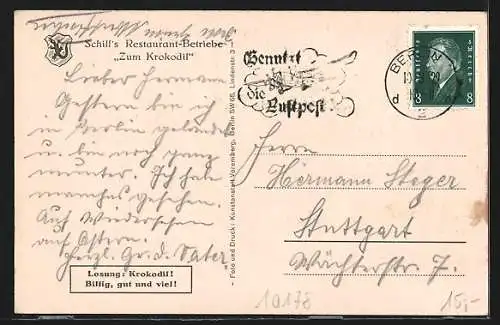 Schill's Restaurant-Betriebe
„Zum Krokodil“
Lieber Hermann
Gestern bin ich
in Berlin gelandet
u. bin noch ganz
munter. Ich habe
manches gesehen.
Auf Wiedersehen
an Ostern.
Herzl. Gr. d. Vater
Losung: Krokodil!
Billig, gut und viel!
Foto und Druck: Kunstanstalt Voremberg, Berlin SW68, Lindenstr. 3
Benutzt
die
Luftpost!
BERLIN
8 8
Herrn
Hermann Steger
Stuttgart
Wächterstr. 7.
10178
15,-